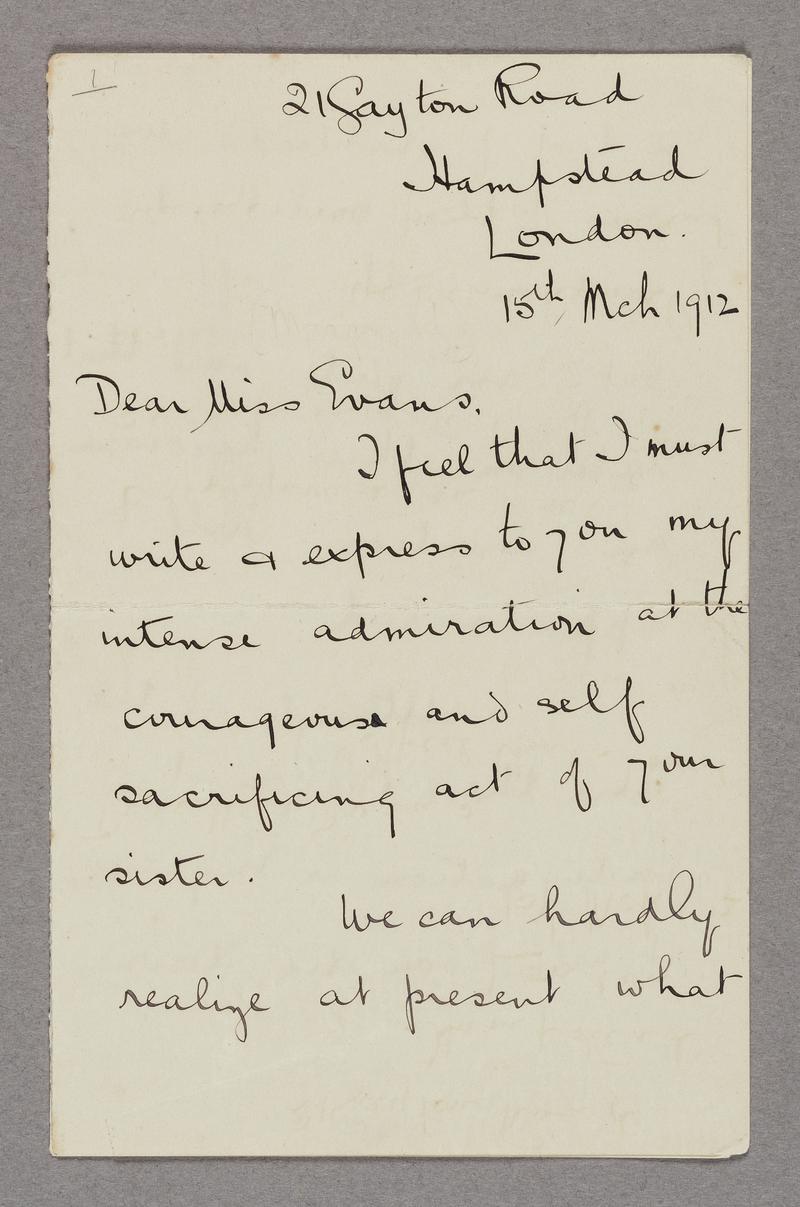 1
21 Gayton Road
Hampstead
London.
15th Mch 1912
Dear Miss Evans,
I feel that I must
write & express to you my
intense admiration at the
courageous and self
sacrificing act of your
sister.
We can hardly
realize at present what